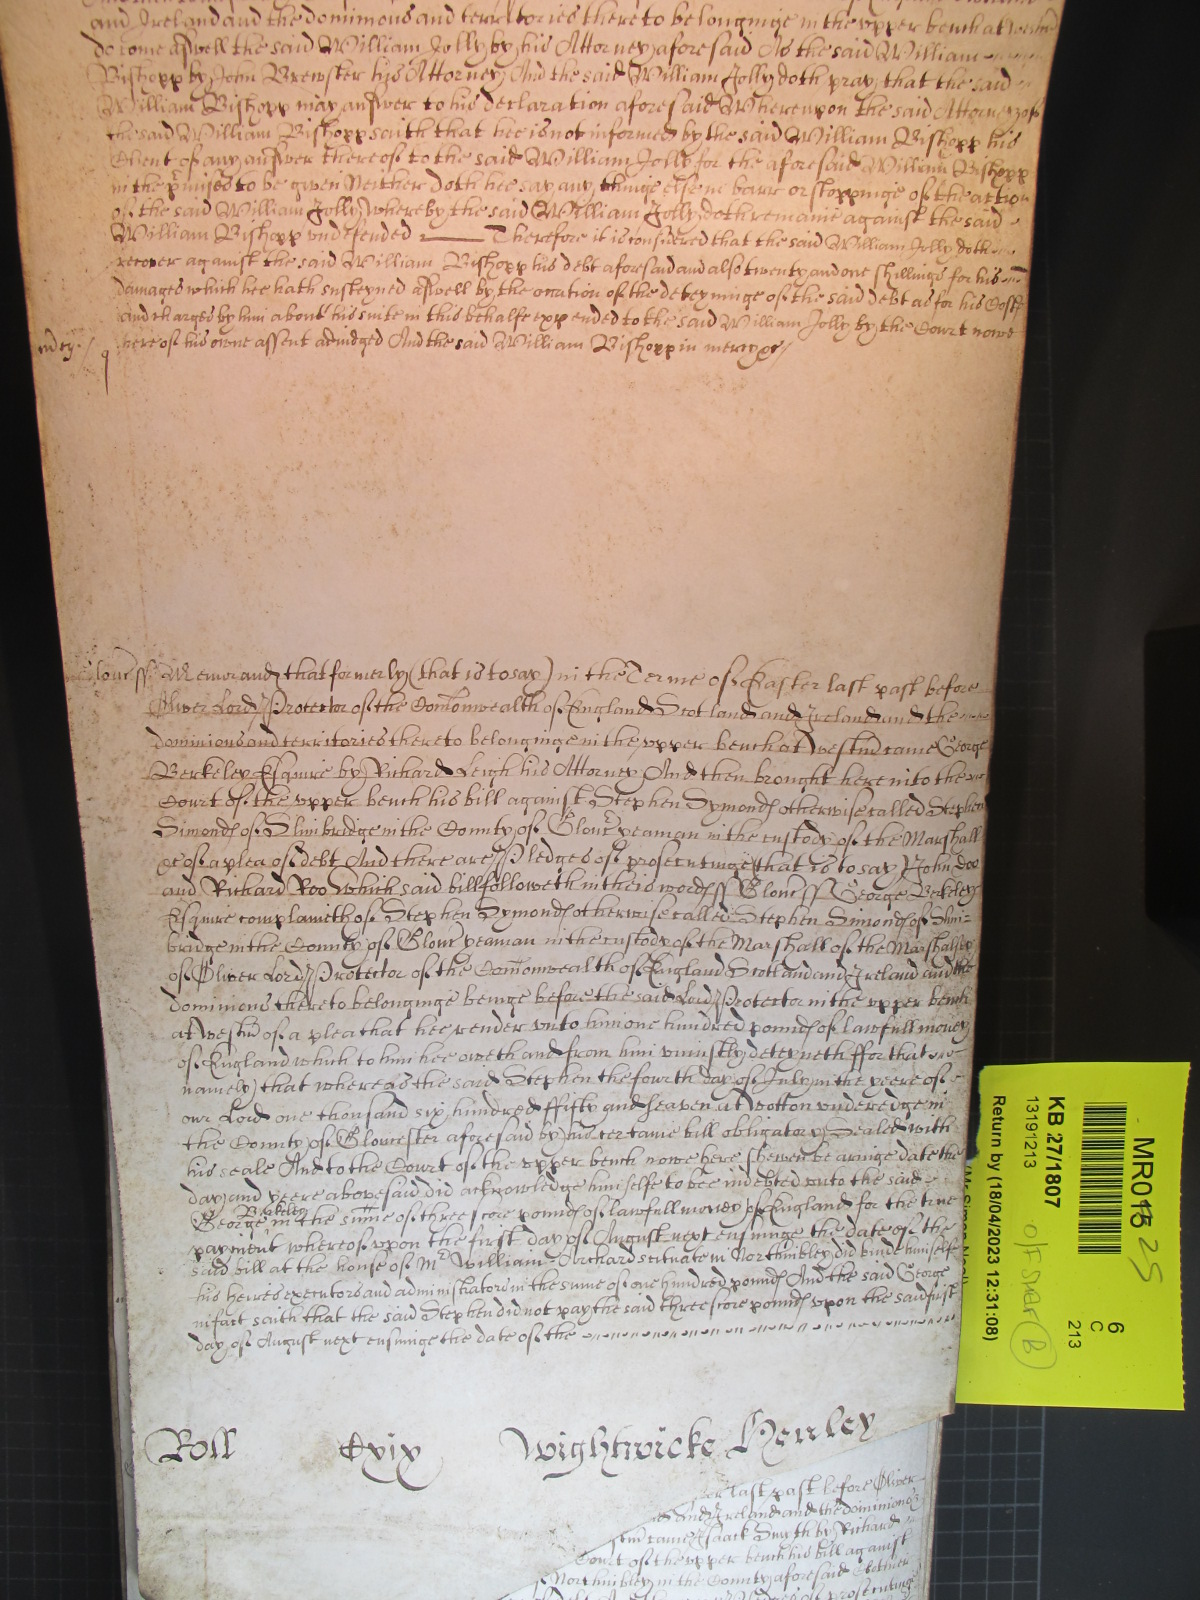 and Ireland and the dominions and territories thereto belonginge in the upper bench at
do come aswell the said William Jolly by his Attorney aforesaid As the said William
Bishopp by John Brewster his Attorney And the said William Jolly doth pray that the said
William Bishopp may answer to his declaration aforesaid Whereupon the said Attorney of
the said William Bishopp saith that hee is not informed by the said William Bishopp his
Client of any answer thereof to the said William Jolly for the aforesaid William Bishopp
in the p'misses to be given Neither doth hee say any thinge else in barr or stoppinge of the action
of the said William Jolly whereby the said William Jolly doth remaine against the said
William Bishopp undefended Therefore it is considered that the said William Jolly doth
recover against the said William Bishopp his debt aforesaid and also twenty and one shillings for his
damages which hee hath susteyned aswell by the occation of the deteyninge of the said debt as for his Costs
and charges by him about his suite in this behalfe expended to the said William Jolly by the Court nowe
here of his owne assent adiudged And the said William Bishopp in mercye
Memorand that formerly (that is to say) in the Terme of Easter last past before
Oliver Lord Protector of the Comonwealth of England Scotland and Ireland and the
dominions and territories thereto belonginge in the upper bench at Westm came George
Berkeley Esquire by Richard Leigh his Attorney And then brought here into the
Court of the upper bench his bill against Stephen Symonds otherwise called Stephen
Simonds of Slimbridge in the County of Glouc yeaman in the custody of the Marshall
&c of a plea of debt And there are Pledges of prosecutinge that is to say John Doo
and Richard Roo Which said bill followeth in theis words ss Glouc ss George Berkeley
Esquire complaineth of Stephen Symonds otherwise called Stephen Simonds of Slim-
bridge in the County of Glouc yeaman in the custody of the Marshall of the Marshalsey
of Oliver Lord Protector of the Comonwealth of England Scotland and Ireland and the
dominions thereto belonginge beinge before the said Lord Protector in the upper bench
at Westm of a plea that hee render unto him one hundred pounds of lawfull money
of England which to him hee oweth and from him uniustly deteyneth ffor that
namely that whereas the said Stephen the fourth day of July in the yeere of
our Lord one thousand six hundred ffifty and seaven at Wotton underedge in
the County of Gloucester aforesaid by his certaine bill obligatory Sealed with
his seale And to the Court of the upper bench nowe here shewen bearinge date the
day and yeere abovesaid did acknowledge himselfe to bee indebted unto the said
George Berkeley in the sume of three score pounds of lawfull money of England for the true
payment whereof upon the first day of August next ensuinge the date of the
said bill at the house of Mr William Orchard scituate in Northnibley did binde himselfe
his heires executors and administrators in the sume of one hundred pounds And the said George
in fact saith that the said Stephen did not pay the said three score pounds upon the said first
day of August next ensuinge the date of the
Roll Cxix Wightwicke Henley
last past before Oliver
and Ireland and the dominions
came Isaack Smyth by Richard
Court of the upper bench his bill against
Northnibley in the County aforesaid Clothier
Pledges of prosecutinge
MR018 25
6
C
213
KB 27/1807
13191213
O/F Snar (B)
Return by (18/04/2023 12:31:08)